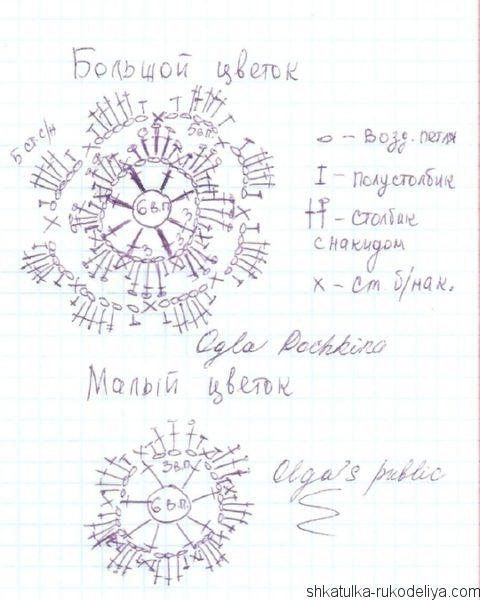 Большой цветок
5 ст.с/н
5 в.п.
6 в.п
3
3
o - Возд. петля
I - полустолбик
- столбик
с накидом
x - ст. б/нак.
Olga Rochkina
Малый цветок
3 в.п.
6 в.п.
Olga's public
shkatulka-rukodeliya.com